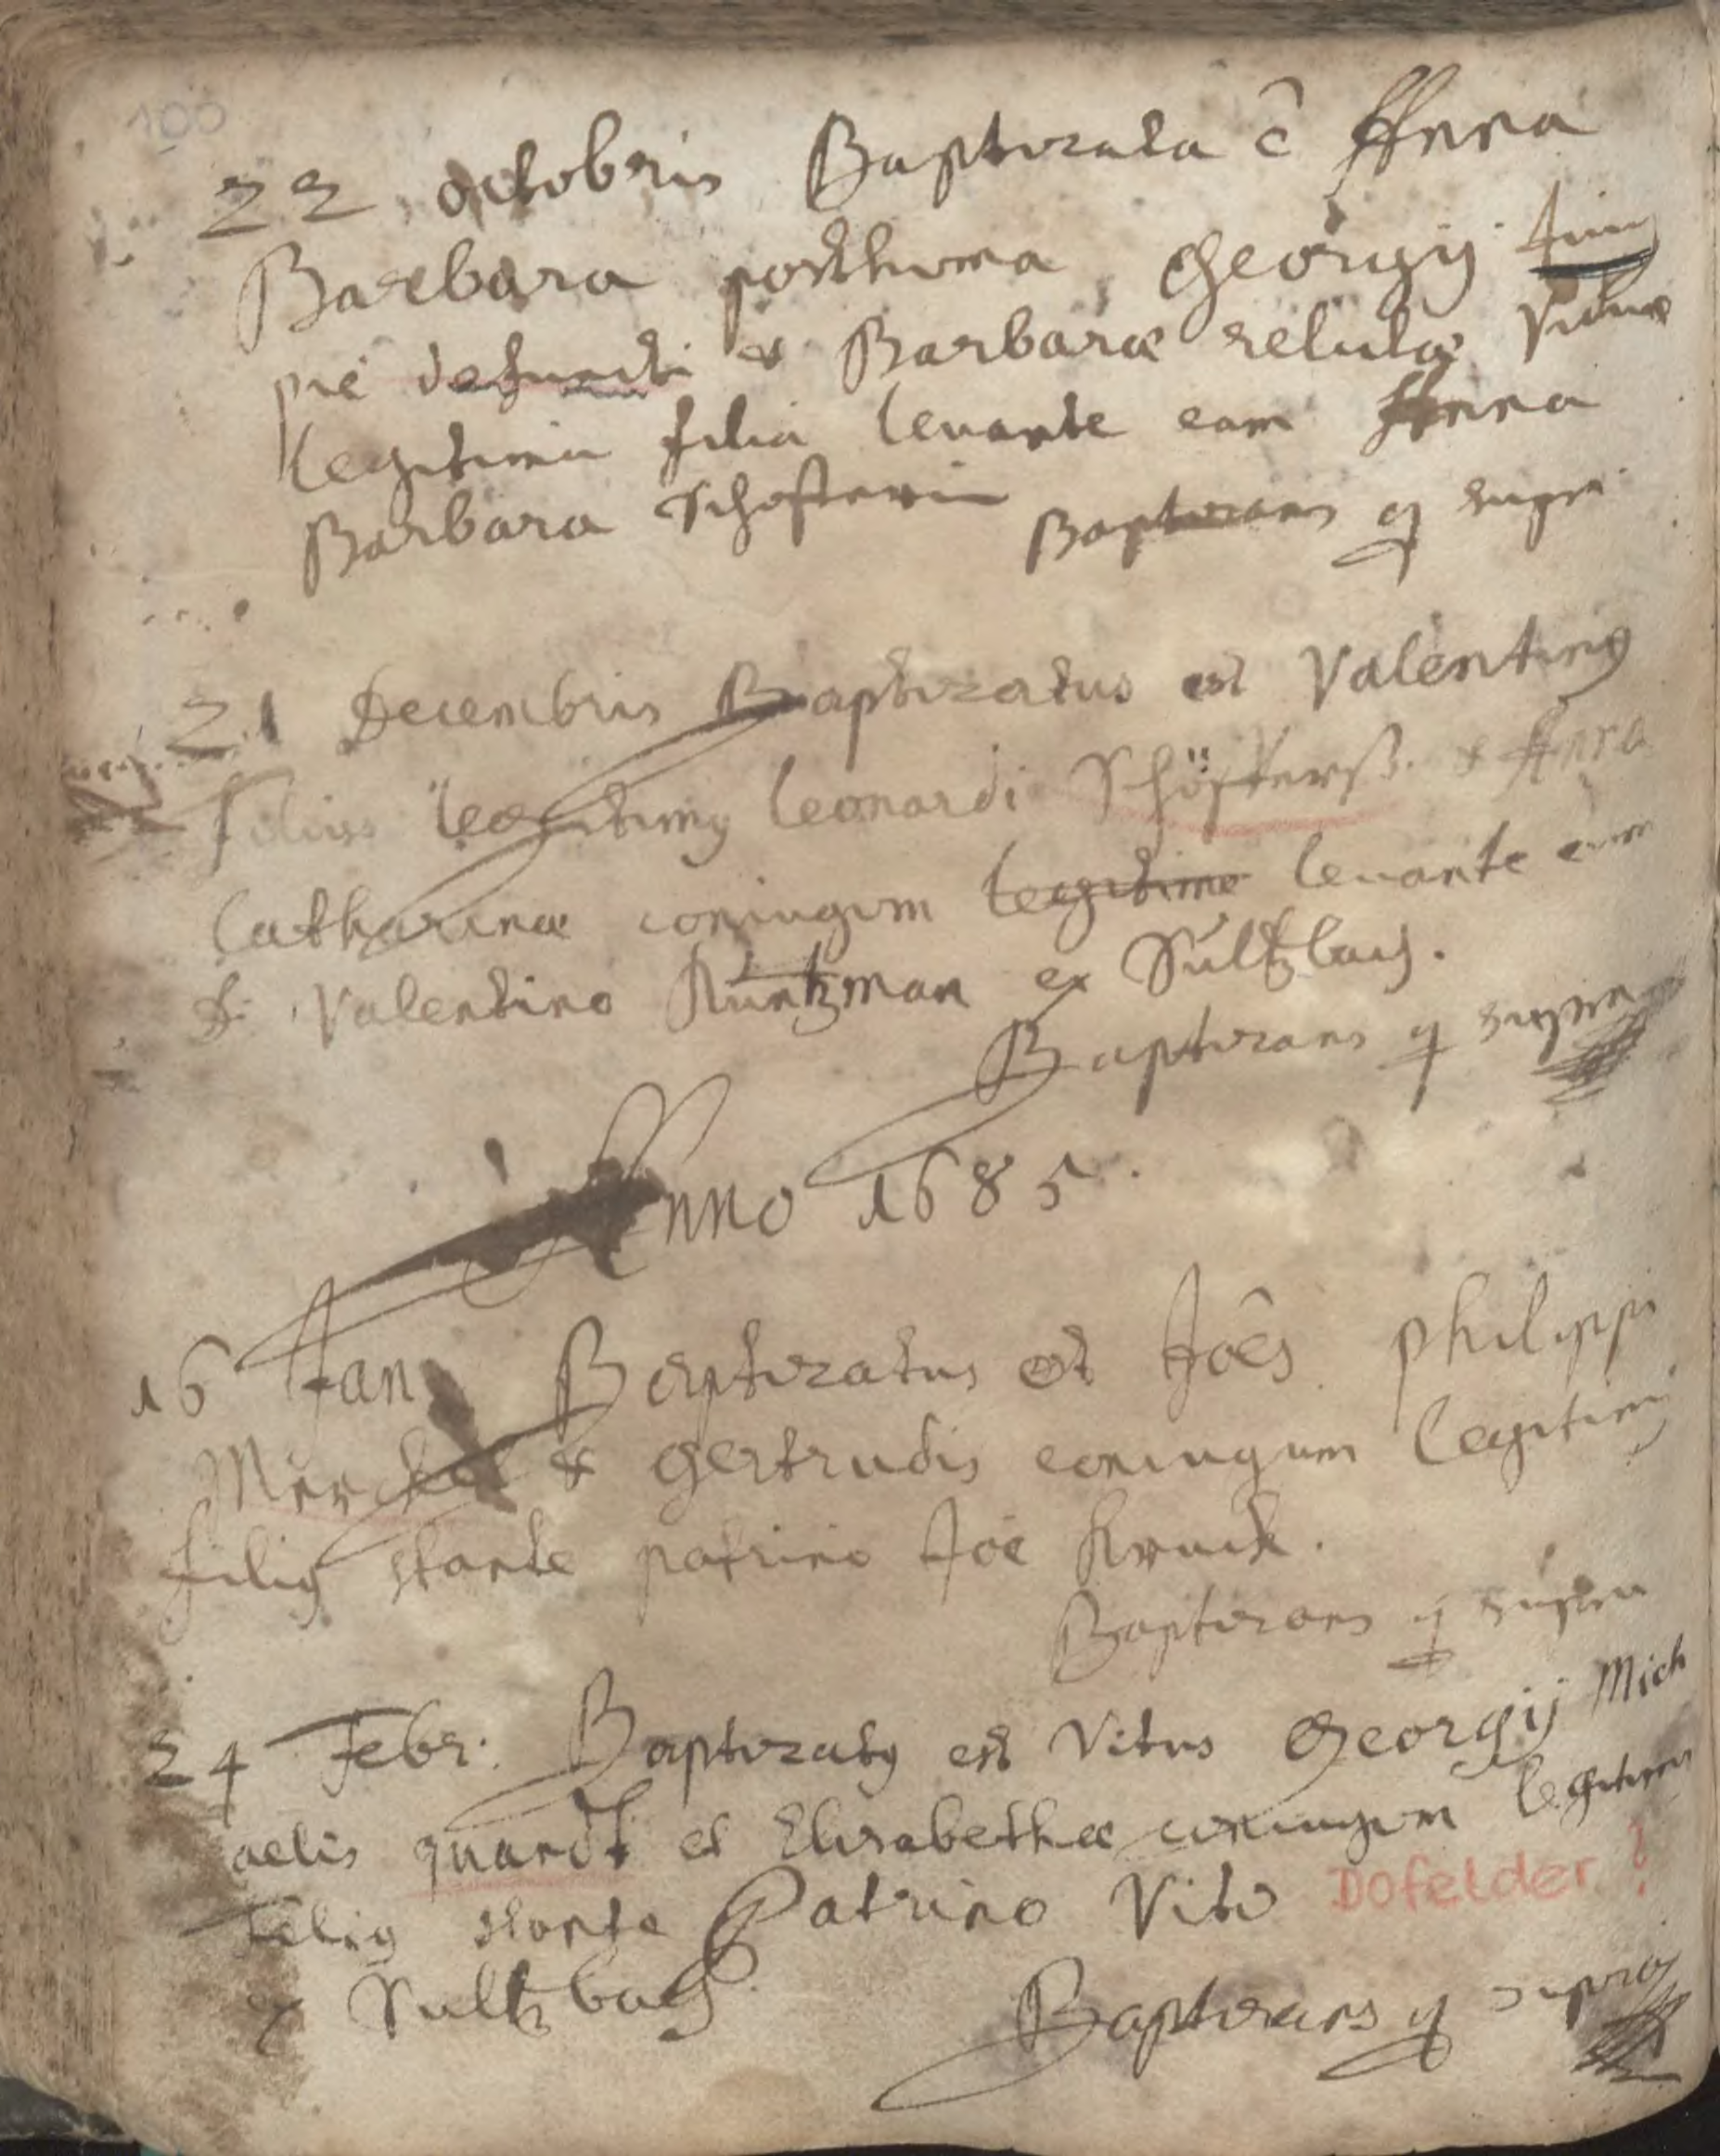 100
22 octobris Baptizata ê Anna
Barbara posthuma Georgij
piè defuncti & Barbaræ relictæ viduæ
legitima filia levante eam Anna
Barbara Schösterin Baptizans q supra
21 Decembris Baptizatus est Valentinq
Filius legitimq Leonardi Schösterß & Anna
Catharinæ coniugum legitime levante eum
D: Valentino Kuntzman ex Sultzbach.
Baptizans q supra
Anno 1685.
16 Jan Baptizatus est Joês Philippi
Merckel & Gertrudis coniugum legitimq
filiq stante patrino Joê Kruck.
Baptizans q supra
24 Febr: Baptizatq est Vitus Georgij Mich
aelis quandt et Elisabethæ coniugum legitimq
Filiq stante Patrino Vito Dofelder ?
ex Sultzbach.
Baptizans q supra